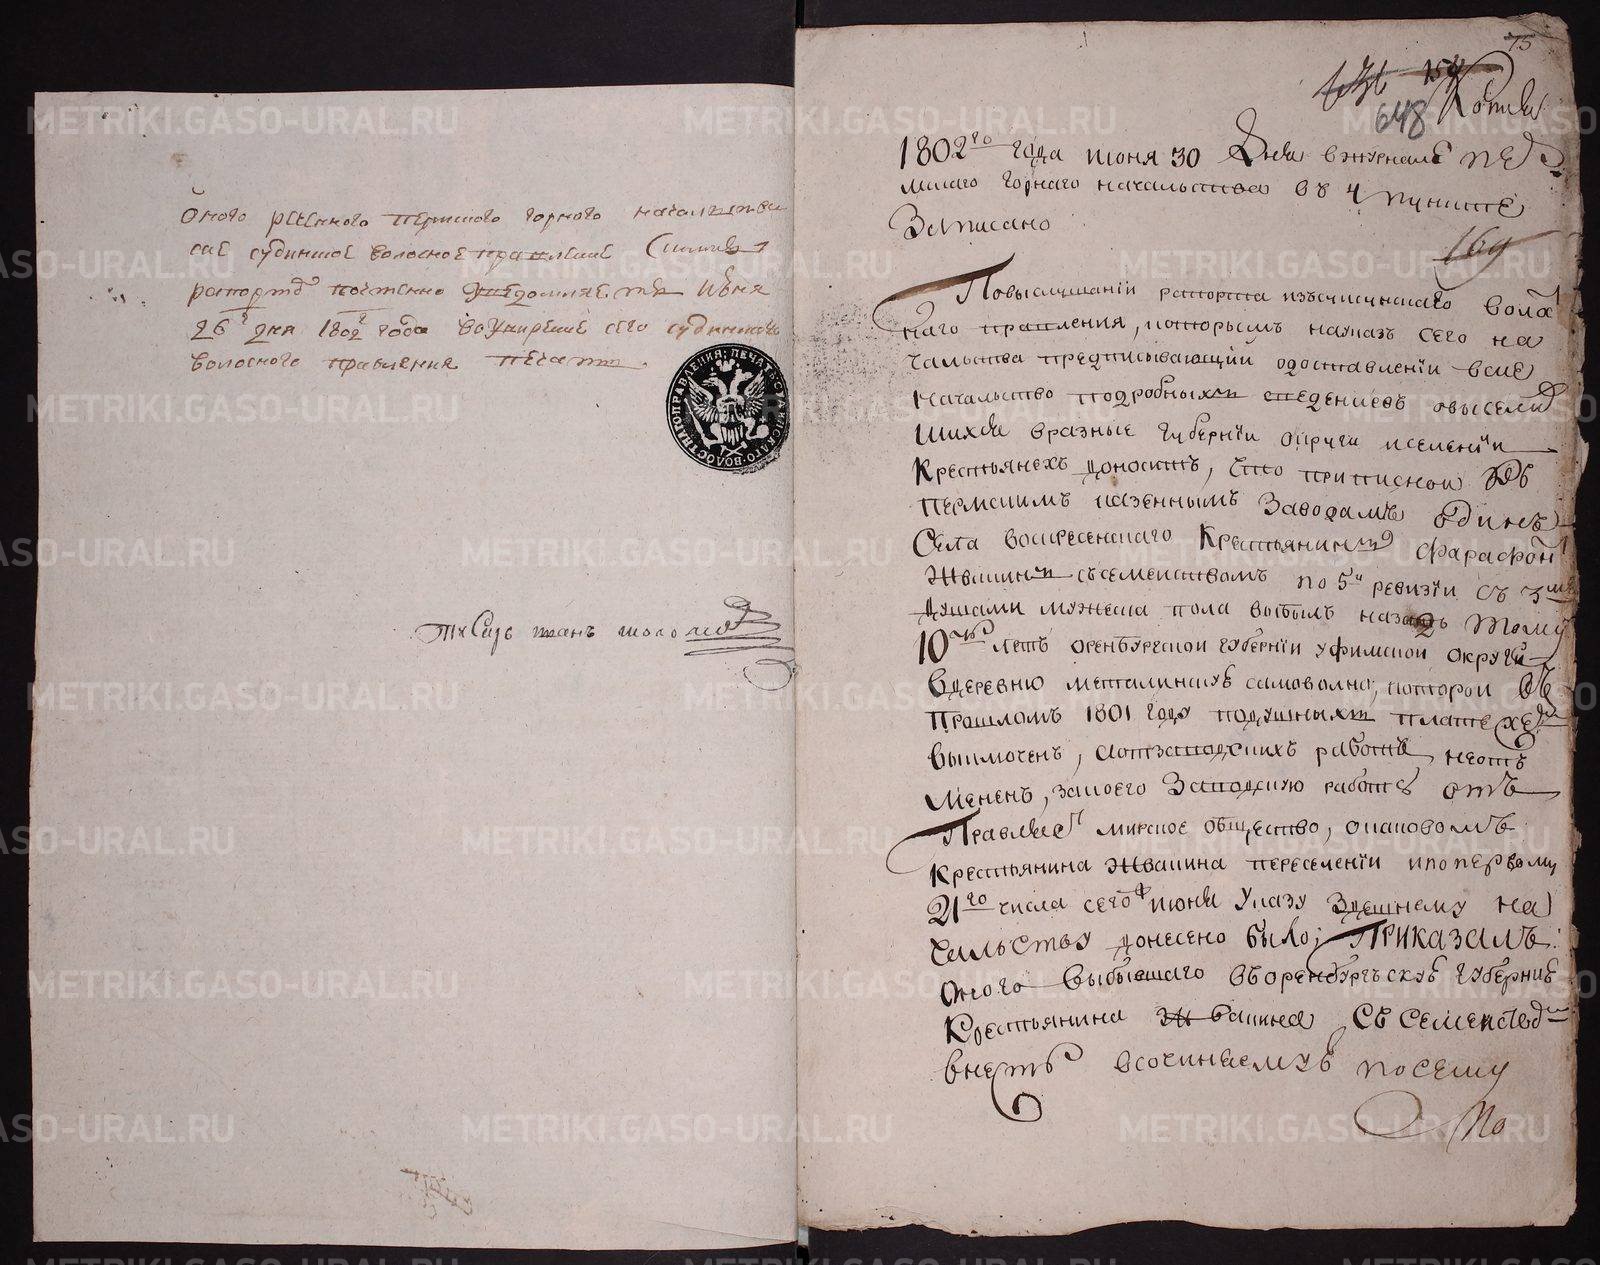 Оного реченного пермского горного началства
сие судинское волосное правление симъ
репортъ почтенно июня
26 дня 1802 года во уверение сего судинского
волосного правления печать
ПЕЧАТЬ СУДИНСКАГО ВОЛОСТНАГО ПРАВЛЕНИЯ
писарь иванъ
75
154
648
Копия
1802го года июня 30 дня в журнале пер
мскаго горнаго начальства въ 4 пункте
Записано
169
По выслушании рапорта изъ волост
наго правления, которымъ на указъ сего на
чальства предписывающий о доставлении в сие
Начальство подробныхъ сведениевъ о выселив
шихся в разные губернии округи и селении
Крестьянехъ доноситъ, что приписной къ
пермскимъ казеннымъ Заводамъ одинъ
Села воскресенскаго Крестьянинъ Фарафон
Жвакинъ съ семействомъ по 5й ревизии съ 3мя
душами мужеска пола выбылъ назадъ тому
10ть летъ оренбургской губернии уфимской округи
в деревню самоволно, которой въ
прошломъ 1801 году подушныхъ платежей
выключенъ, а от заводскихъ работъ не отъ
мененъ, за коего Заводскую работъ отъ
Правляетъ мирское общество, о каковомъ
крестьянина Жвакина переселении и по первому
21го числа сего июня указу здешнему на
чальству донесено было; Приказалъ:
оного выбывшаго въ оренбургскую губернию
Крестьянина Жвакина съ семействомъ
внесть в сочиняемую по сему
По